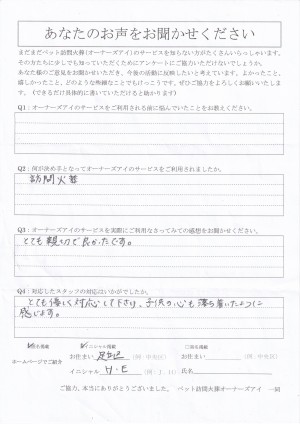 あなたのお声をお聞かせください
まだまだペット訪問火葬(オーナーズアイ)のサービスを知らない方がたくさんいらっしゃいます。
その方たちに少しでも知っていただくためにアンケートにご協力いただけないでしょうか。
あなた様のご意見をお聞かせいただき、今後の活動に反映したいと考えています。よかったこと、
嬉しかったこと、どのような些細なことでもけっこうです。ぜひご協力をよろしくお願いいたします。
(できるだけ具体的に書いていただけると助かります)
Q1:オーナーズアイのサービスをご利用される前に悩んでいたことをお教えください。
Q2:何が決め手となってオーナーズアイのサービスをご利用されましたか。
訪問火葬
Q3:オーナーズアイのサービスを実際にご利用なさってみての感想をお聞かせください。
とても親切で良かったです。
Q4:対応したスタッフの対応はいかがでしたか。
とても優しく対応して下さり、子供の心も落ち着いたように
感じます。
イニシャル掲載
ホームページでご紹介
お住まい 足立区 (例:中央区)
お住まい (例:中央区)
イニシャル H・E
氏名
ご協力、本当にありがとうございました。 ペット訪問火葬オーナーズアイ 一同